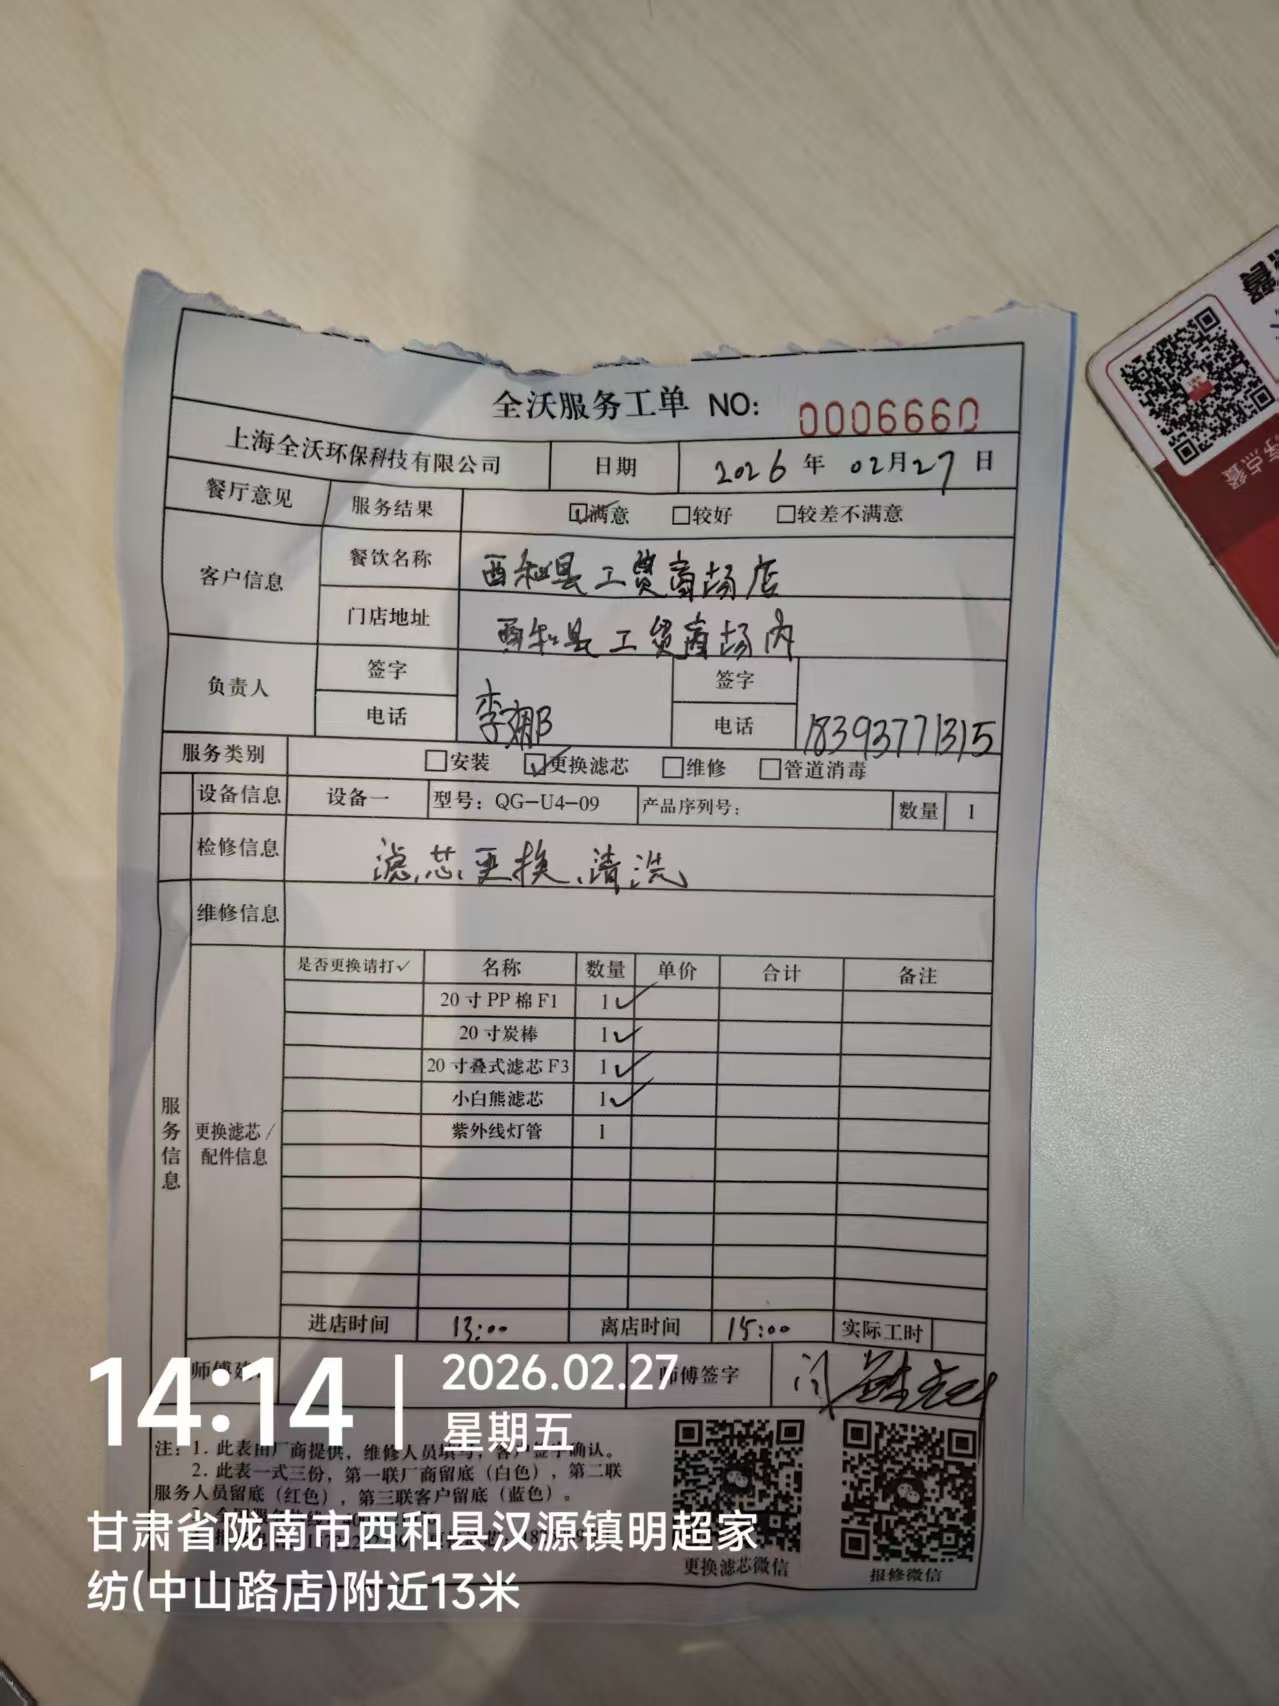 全沃服务工单 NO: 0006660
上海全沃环保科技有限公司 日期 2026 年 02月27 日
餐厅意见 服务结果 ☑满意 □较好 □较差不满意
客户信息 餐饮名称 西和县工贸商场店
门店地址 西和县工贸商场内
负责人 签字 李娜 签字
电话 电话 18393771315
服务类别 □安装 ☑更换滤芯 □维修 □管道消毒
设备信息 设备一 型号：QG-U4-09 产品序列号： 数量 1
检修信息 滤芯更换、清洗
维修信息
服务信息
更换滤芯/配件信息
是否更换请打✓ 名称 数量 单价 合计 备注
20寸PP棉F1 1 ✓
20寸炭棒 1 ✓
20寸叠式滤芯F3 1 ✓
小白熊滤芯 1 ✓
紫外线灯管 1
进店时间 13:00 离店时间 15:00 实际工时
师傅 师傅签字
14:14
2026.02.27
星期五
注：1. 此表由厂商提供，维修人员填写，客户签字确认。
2. 此表一式三份，第一联厂商留底（白色），第二联
服务人员留底（红色），第三联客户留底（蓝色）。
甘肃省陇南市西和县汉源镇明超家
纺(中山路店)附近13米
更换滤芯微信
报修微信
点餐